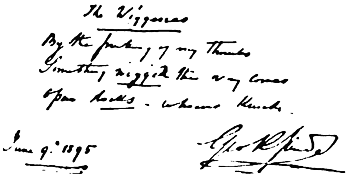 The
By the pricking of my Thumbs
Something this way comes
Open Locks - whoever knocks.
June 9. 1895
Geo R Sims